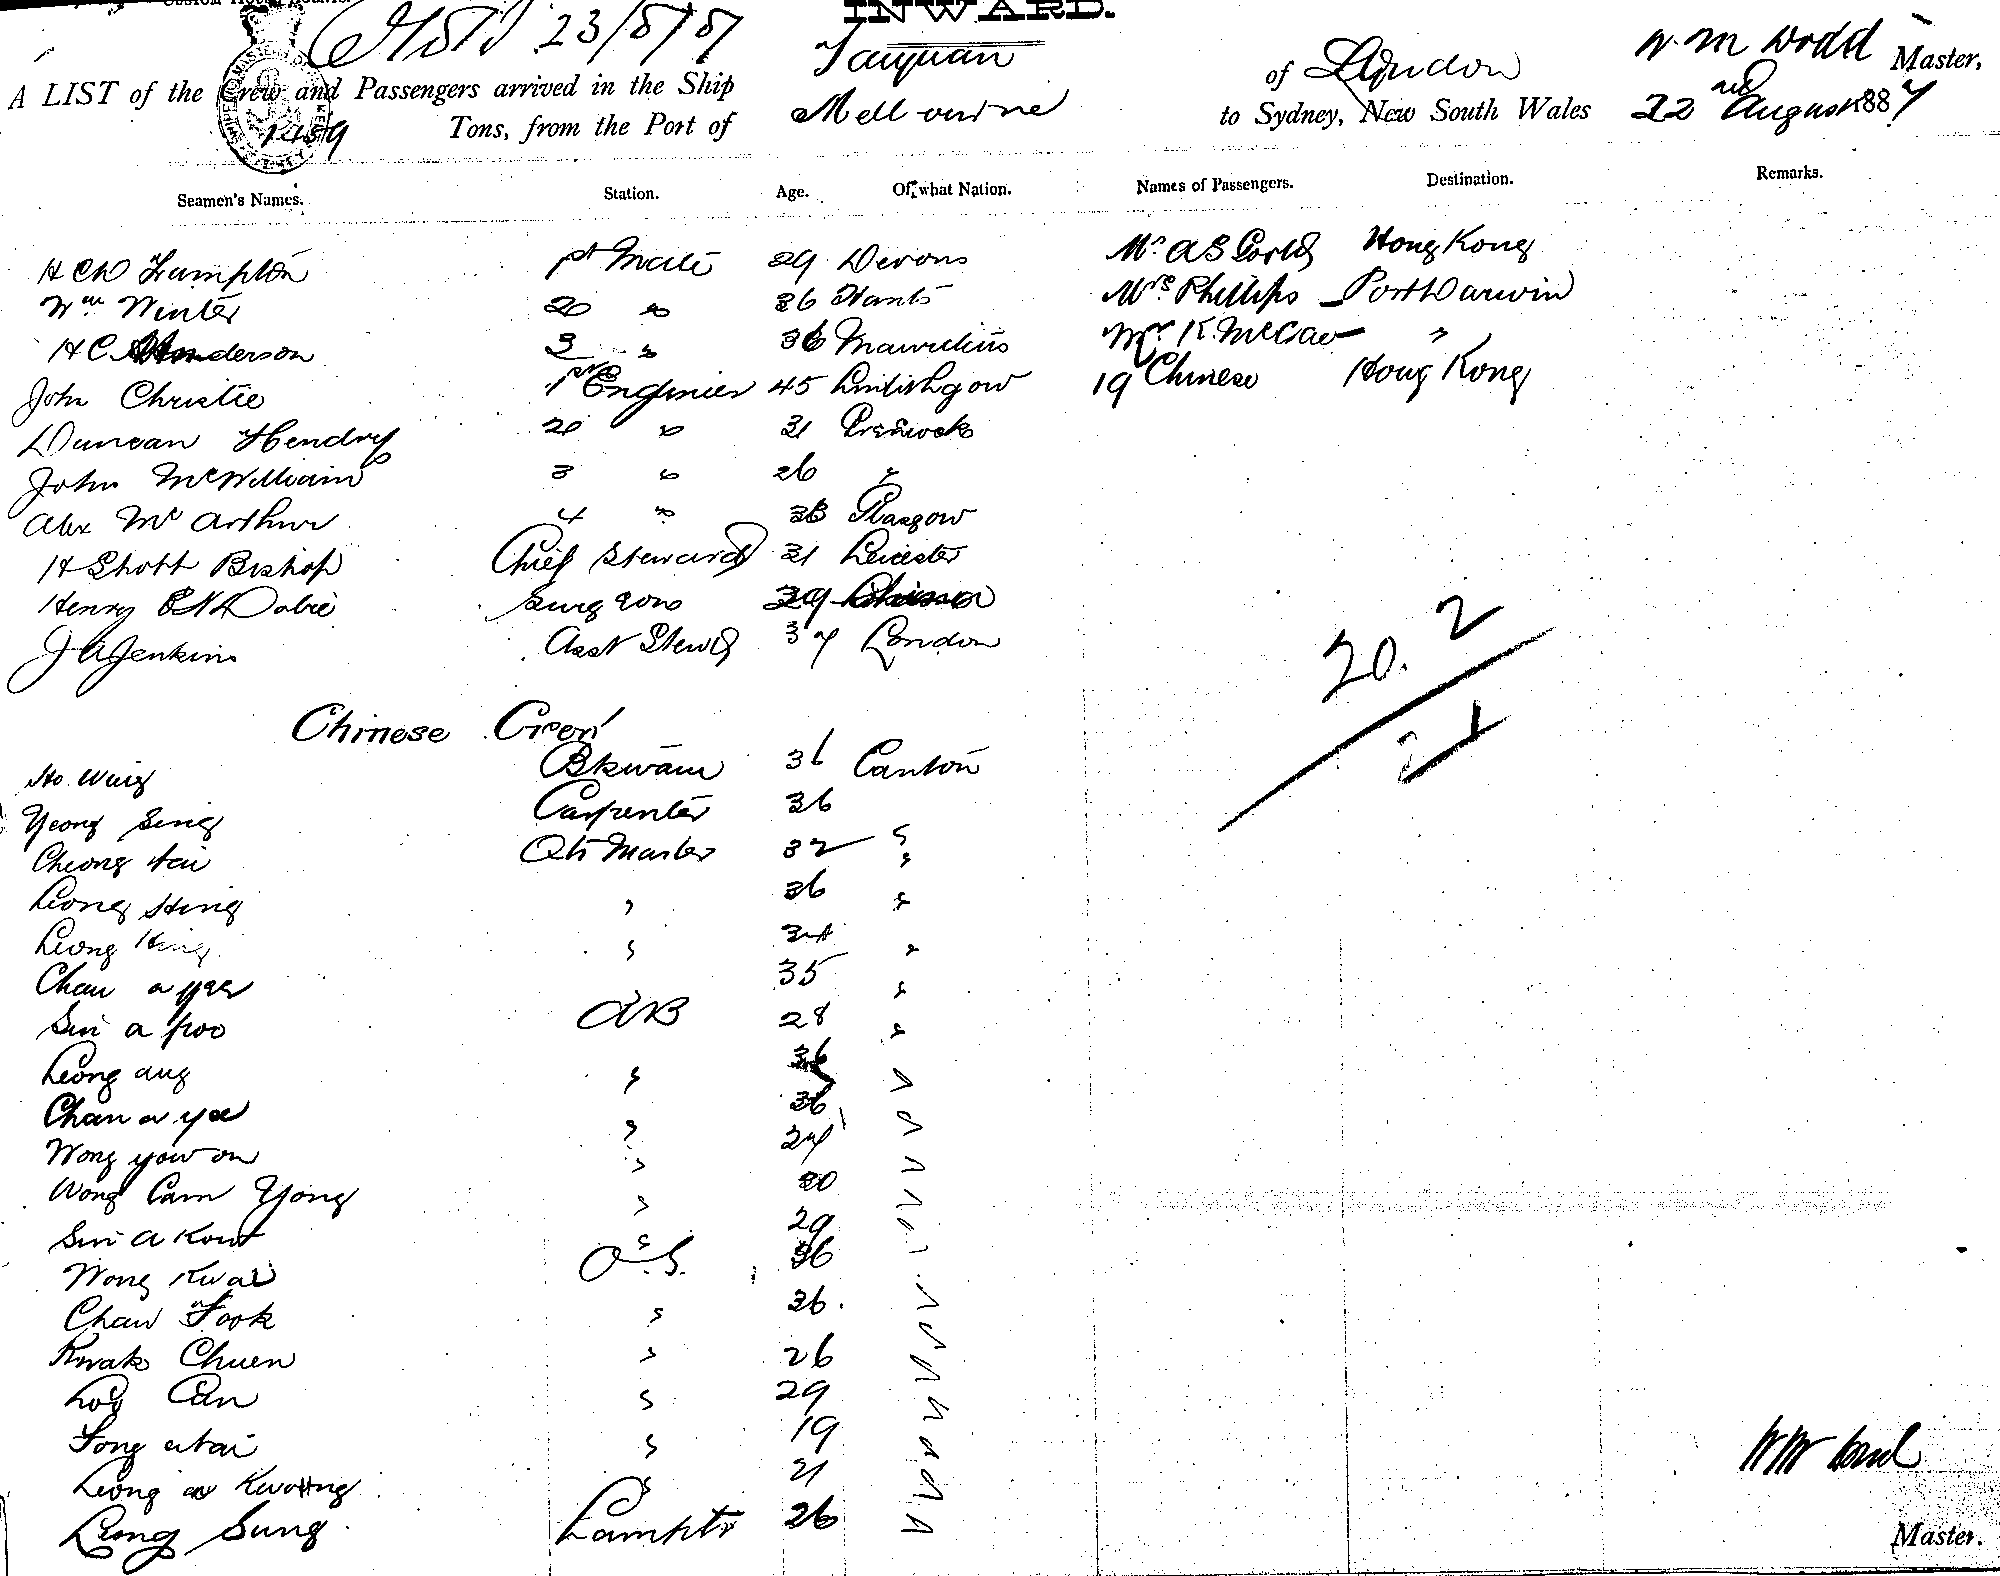 INWARD.
23/8/87
A LIST of the Crew and Passengers arrived in the Ship Taiyuan of London W. M Dodd Master,
1459 Tons, from the Port of Melbourne to Sydney, New South Wales 22nd August 1887
Seamen's Names. Station. Age. Of what Nation. Names of Passengers. Destination. Remarks.
H C W Lumpton 1st Mate 29 Devons Mr A S Hong Kong
Wm Winter 20 " 36 Hants Mrs Phillips Port Darwin
H C Henderson 3 " 36 Mauritius Mr K. McCaw "
John Christie 1st Engineer 45 Linlithgow 19 Chinese Hong Kong
Duncan Hendry 20 " 31 Greenock
John McWilliam 3 " 26 "
Alex McArthur 4 " 38 Glasgow
H Shott Bishop Chief Steward 31 Leicester
Henry Dobie Surgeon 39
J A Jenkins Asst Stewd 37 London
20. 2
Chinese Crew
Ho Wing Bkwain 36 Canton
Yeong Sing Carpenter 36
Cheong tai Qtr Master 32 "
Leong Hing " 36 "
Leong Hing " 34 "
Chan a yee 35 "
Sin a poo AB 28 "
Leong aug " 36 "
Chan a yee " 36 "
Wong yow on " 24 "
Wong Cam Yong " 30 "
Sin a Kow " 29 "
Wong Kwai O.S. 36 "
Chaw Fook " 36. "
Kwak Chuen " 26 "
Loy Can " 29 "
Fong a tai " 19 "
Leong a Kwong " 21 "
Leong Sung Lamptr 26 "
W M Dodd
Master.